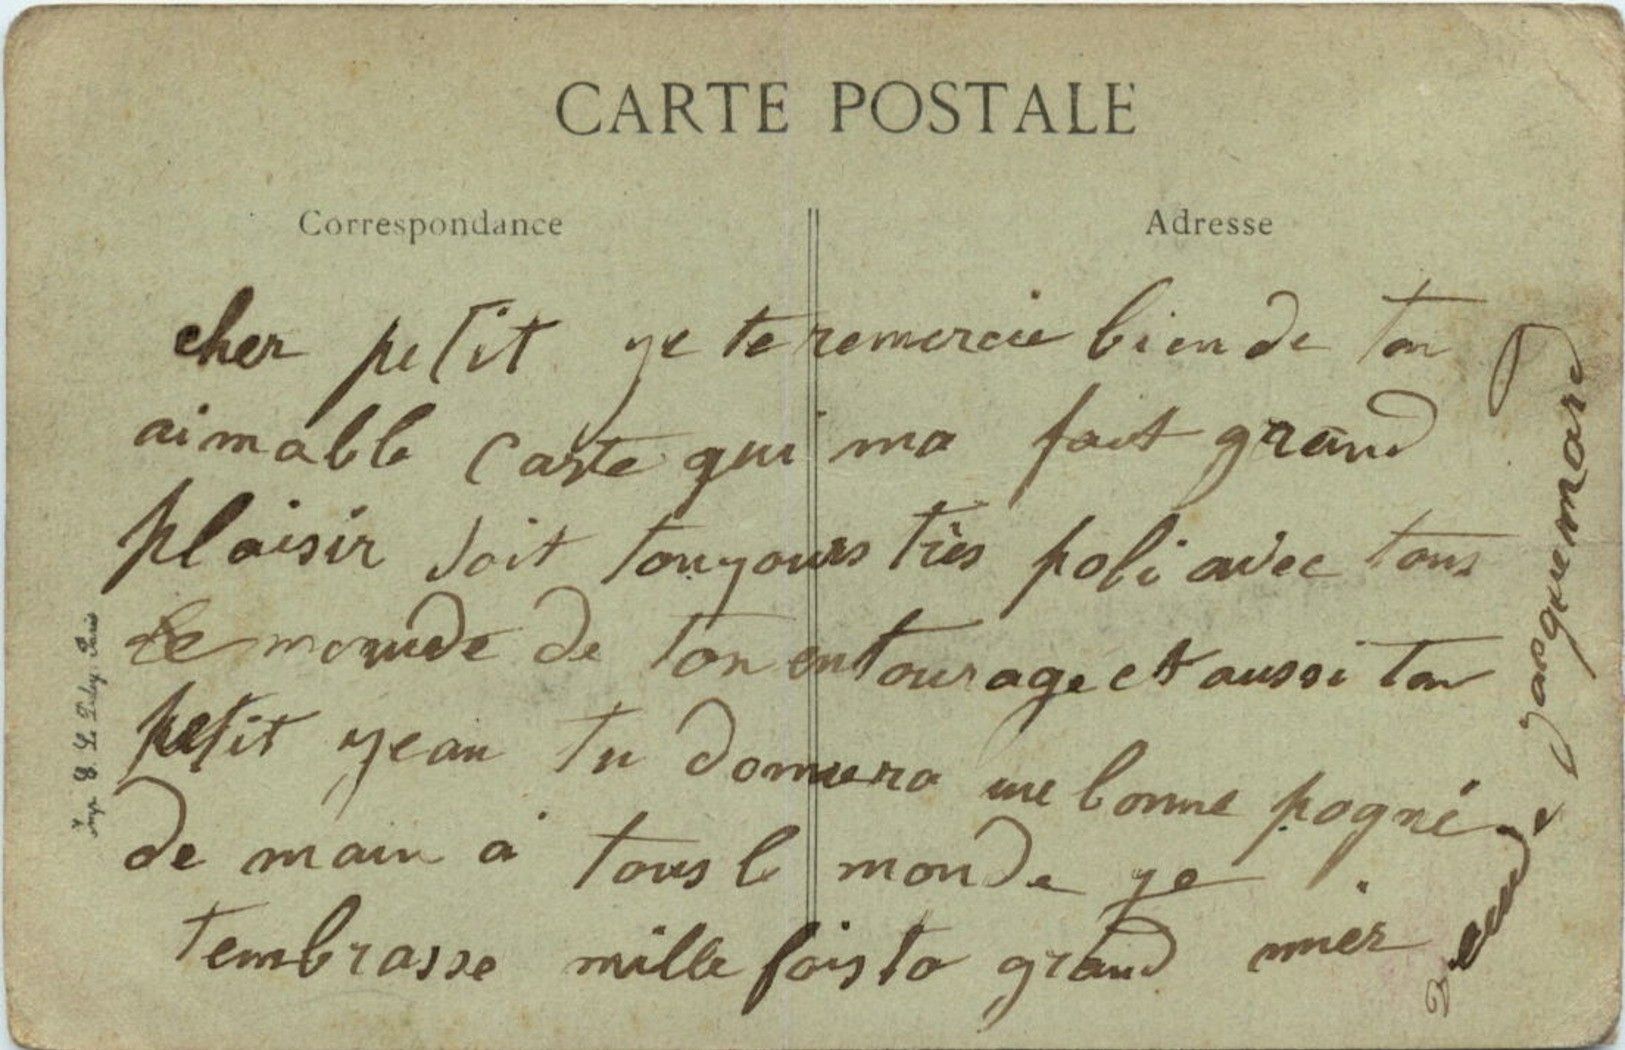 CARTE POSTALE
Correspondance
Adresse
cher petit ye te remercie bien de ton
aimable carte qui ma fait grand
plaisir soit touyours très poli avec tous
le monde de ton entourage et aussi ton
petit yean tu donnera une bonne pogné
de main à tous le monde ye
tembrasse mille fois ta grand mièr
jacquemard
Imp. Paris